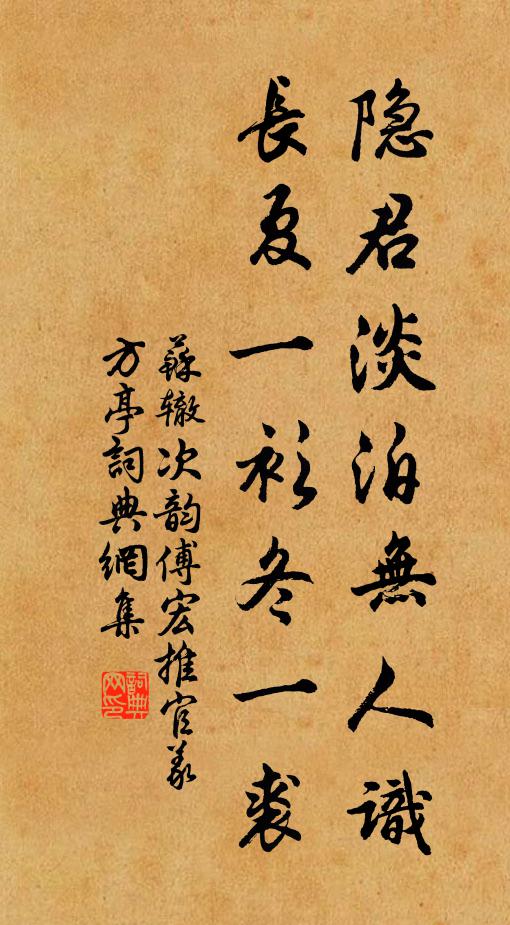 隐君淡泊無人識
長夏一衫冬一裘
蘇辙次韵傅宏推官義
方亭詞典網集
詞典网印